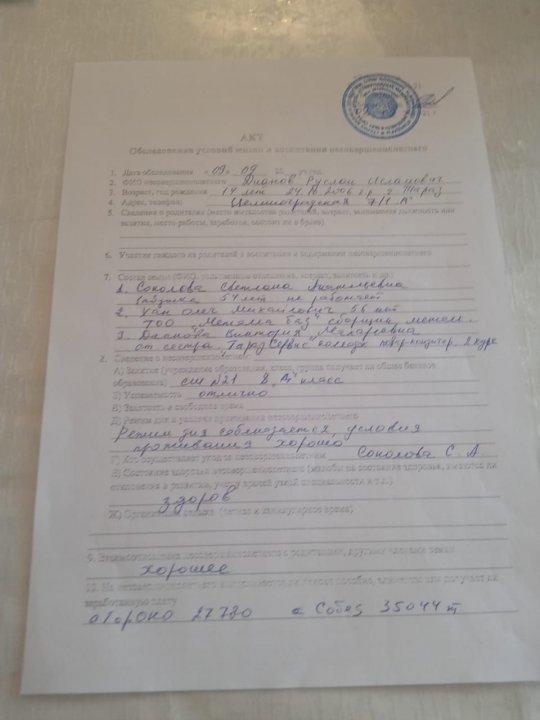 АКТ
Обследования условий жизни и воспитания несовершеннолетнего
1. Дата обследования «09» 09 20
2. ФИО несовершеннолетнего Дианов Руслан Исламович
3. Возраст, год рождения 14 лет 24.10.2006 г.р. г. Тараз
4. Адрес, телефон; Целиноградская 7/1 А"
5. Сведения о родителях (место жительства родителей, возраст, занимаемая должность или
занятие, место работы, заработок, состоят ли в браке)
6. Участие каждого из родителей в воспитании и содержании несовершеннолетнего
7. Состав семьи (ФИО, родственные отношения, возраст, занятость и др.)
1. Соколова Светлана Анатольевна
54 лет не работает
2. Хан Олег Михайлович 56 лет
ТОО "Меняла баз" сборщик метал.
3. Дианова Виктория
от сестра, Тараз Сервис колледж 2 курс
2. Сведения о несовершеннолетнем
А) Занятия (учреждение образования, класс, группа получает ли общее базовое
образование) сш №21 8 „А" класс
Б) Успеваемость отлично
В) Занятость в свободное время
Д) Режим дня и условия проживания несовершеннолетнего
Режим дня соблюдается, условия
проживания хорошо
Г) Кто осуществляет уход за несовершеннолетним Соколова С. А.
Е) Состояние здоровья несовершеннолетнего (жалобы на состояние здоровья, имеются ли
отклонения в развитии, учет у врачей узкой специальности и т.д.)
здоров
Ж) Организация отдыха (летнее и каникулярное время)
9. Взаимоотношения несовершеннолетнего с родителями, другими членами семьи
хорошее
10. На несовершеннолетнего пособие, алименты или получает ли
заработанную плату
27730 Собес 35044 т